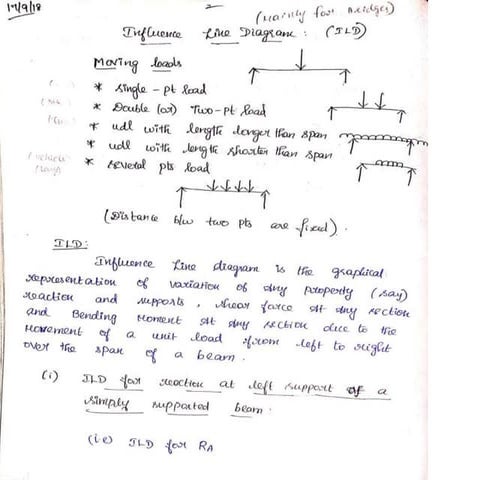 17/9/18
(Mainly for Bridges)
Influence Line Diagram: (ILD)
Moving loads
* single-pt load
* Double (or) Two-pt load
* udl with length longer than span
* udl with length shorter than span
* several pts load
(Distance b/w two pts are fixed).
ILD:
Influence Line diagram is the graphical
representation of variation of any property (say)
reaction and supports, shear force at any section
and Bending Moment at any section due to the
Movement of a unit load from left to right
over the span of a beam.
(i) ILD for reaction at left support of a
simply supported beam.
(ie) ILD for RA